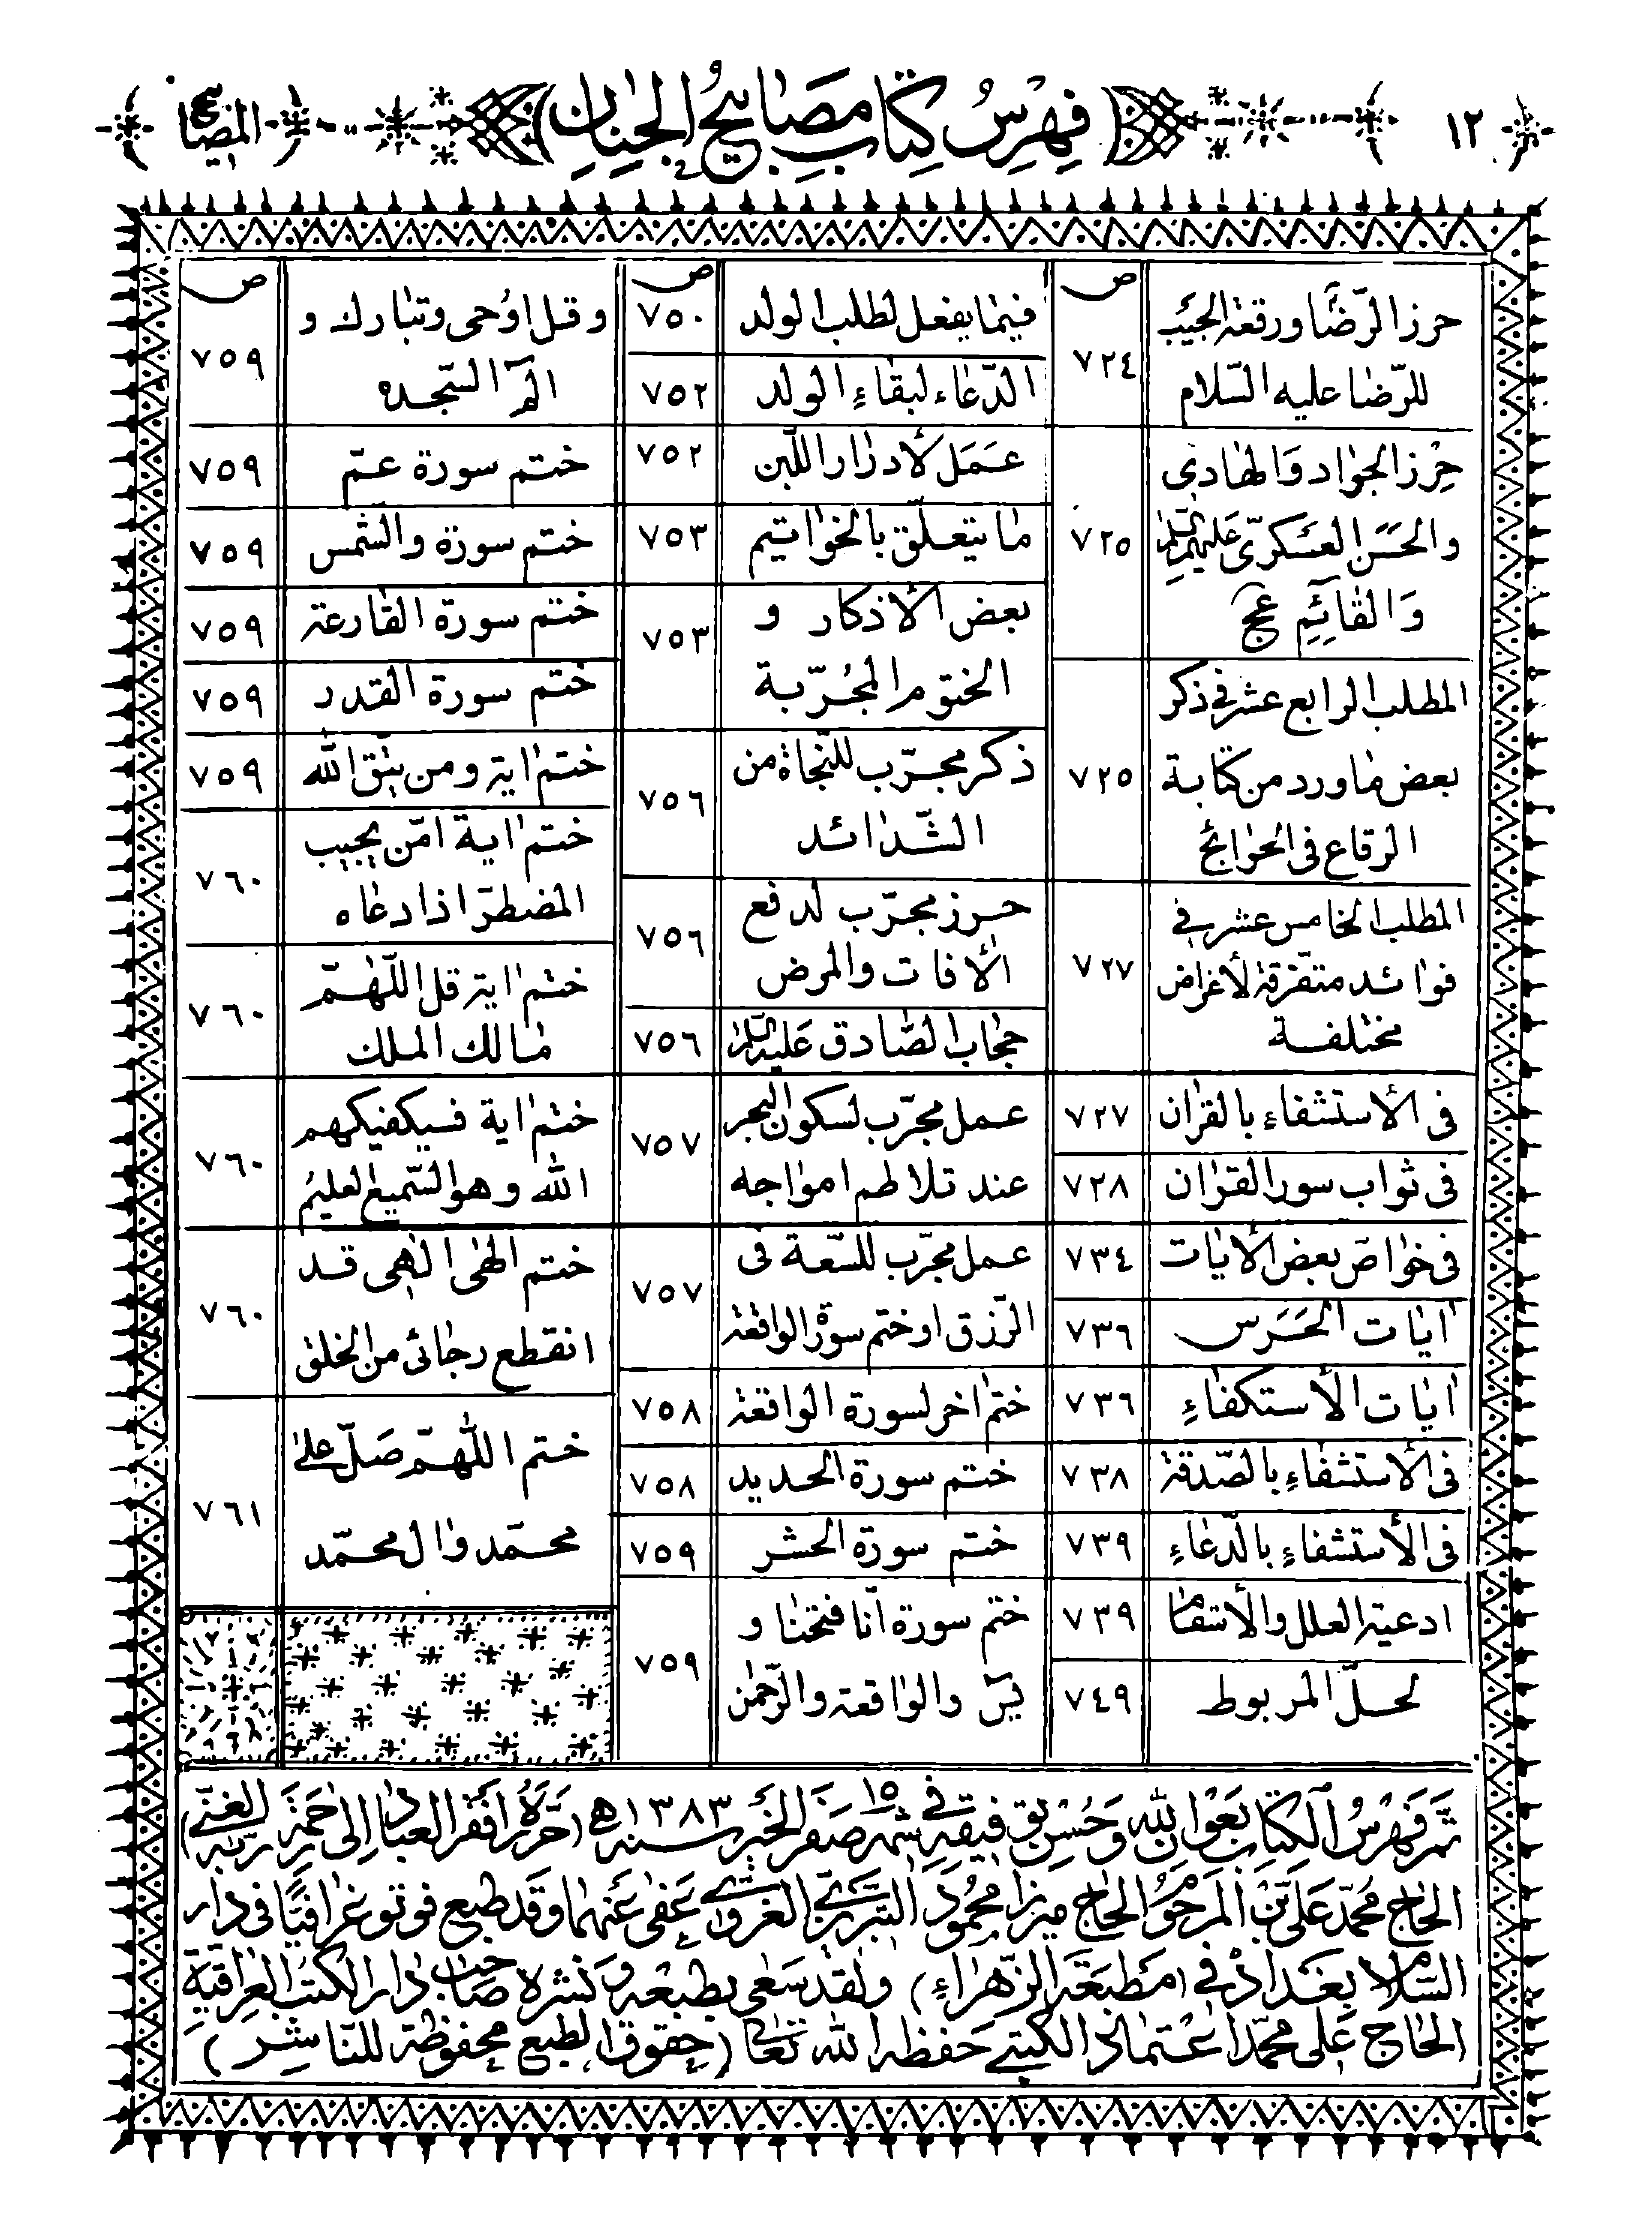 ١٢
فهرس كتاب مصابيح الجنان
المصابيح
ص
حرز الرّضا ورقعة الجيب
للرّضا عليه السّلام
٧٢٤
حرز الجواد والهادى
والحسن العسكرىّ عليهم السّلام
والقائم عج
٧٢٥
المطلب الرابع عشر فى ذكر
بعض ما ورد من كتابة
الرقاع فى الحوائج
٧٢٥
المطلب الخامس عشر فى
فوائد متفرّقة لأغراض
مختلفة
٧٢٧
فى الأستشفاء بالقرآن
٧٢٧
فى ثواب سور القرآن
٧٢٨
فى خواصّ بعض الأيات
٧٣٤
ايات الحَرَس
٧٣٦
ايات الأستكفاءِ
٧٣٦
فى الأستشفاءِ بالصّدقة
٧٣٨
فى الأستشفاءِ بالدّعاءِ
٧٣٩
ادعية العلل والأسقام
٧٣٩
لحلّ المربوط
٧٤٩
ص
فيما يفعل لطلب الولد
٧٥٠
الدّعاء لبقاءِ الولد
٧٥٢
عمل لأدرار اللّبن
٧٥٢
ما يتعلّق بالخواتيم
٧٥٣
بعض الأذكار و
الختوم المجرّبة
٧٥٣
ذكر مجرّب للنّجاة من
الشّدائد
٧٥٦
حرز مجرّب لدفع
الأفات والمرض
٧٥٦
حجاب الصّادق عليه السّلام
٧٥٦
عمل مجرّب لسكون البحر
عند تلاطم امواجه
٧٥٧
عمل مجرّب للسّعة فى
الرّزق او ختم سورة الواقعة
٧٥٧
ختم اخر لسورة الواقعة
٧٥٨
ختم سورة الحديد
٧٥٨
ختم سورة الحشر
٧٥٩
ختم سورة انّا فتحنا و
يسۤ والواقعة والرّحمن
٧٥٩
ص
وقل اوحى وتبارك و
المۤ السّجده
٧٥٩
ختم سورة عمّ
٧٥٩
ختم سورة والشّمس
٧٥٩
ختم سورة القارعة
٧٥٩
ختم سورة القدر
٧٥٩
ختم اية ومن يتّق الله
٧٥٩
ختم اية امّن يجيب
المضطرّ اذا دعاه
٧٦٠
ختم اية قل اللّهمّ
مالك الملك
٧٦٠
ختم اية فسيكفيكهم
الله وهو السّميع العليم
٧٦٠
ختم الهى الهى قد
انقطع رجائى من الخلق
٧٦٠
ختم اللّهمّ صلّ على
محمّد وال محمّد
٧٦١
تمّ فهرس الكتاب بعون الله وحسن توفيقه فى ١٥ شهر صفر الخير سنه ١٣٨٣ هـ (حرّره افقر العباد الى رحمة ربّه الغنىّ)
الحاج محمّد على بن المرحوم الحاج ميرزا محمود التبريزى الغروى عفى عنهما وقد طبع فوتوغرافيّا فى دار
السّلام بغداد فى (مطبعة الزهراء) ولقد سعى بطبعه ونشره صاحب دار الكتب العراقية
الحاج على محمّد اعتماد الكتبى حفظه الله تعالى (حقوق الطبع محفوظة للنّاشر)